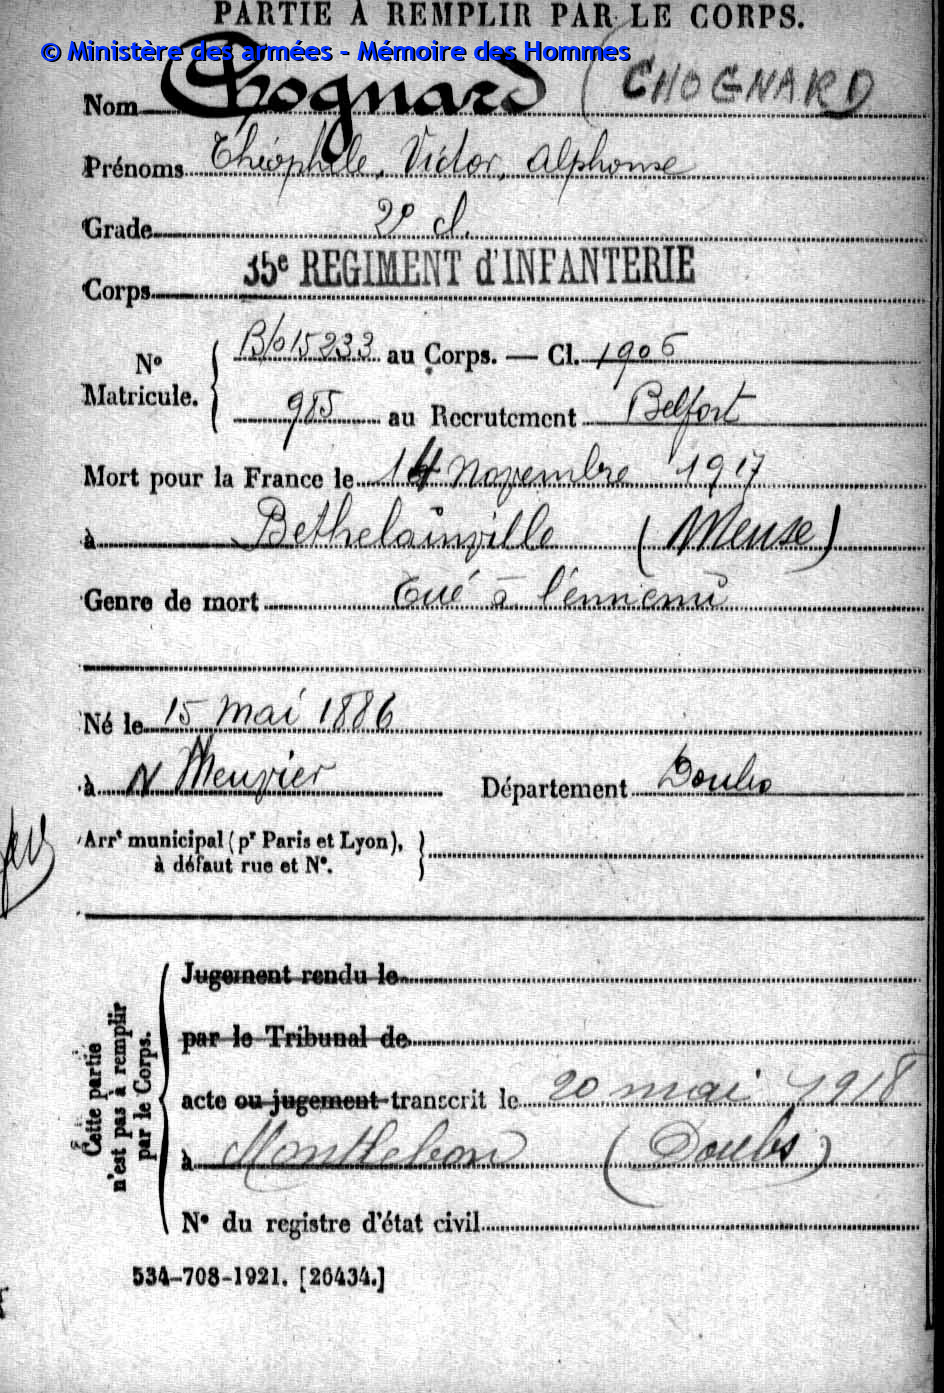 PARTIE À REMPLIR PAR LE CORPS.
© Ministère des armées - Mémoire des Hommes
Nom Chognard (CHOGNARD
Prénoms Théophile, Victor, Alphonse
Grade 2e cl.
Corps 35e REGIMENT d'INFANTERIE
No Matricule. { B/o 15233 au Corps. — Cl. 1906
985 au Recrutement Belfort
Mort pour la France le 14 novembre 1917
à Bethelainville (Meuse)
Genre de mort Tué à l'ennemi
Né le 15 mai 1886
à Département Doubs
Arrt municipal (pr Paris et Lyon), à défaut rue et No. }
Cette partie n'est pas à remplir par le Corps.
Jugement rendu le
par le Tribunal de
acte ou jugement transcrit le 20 mai 1918
à Montlebon (Doubs)
No du registre d'état civil
534-708-1921. [26434.]